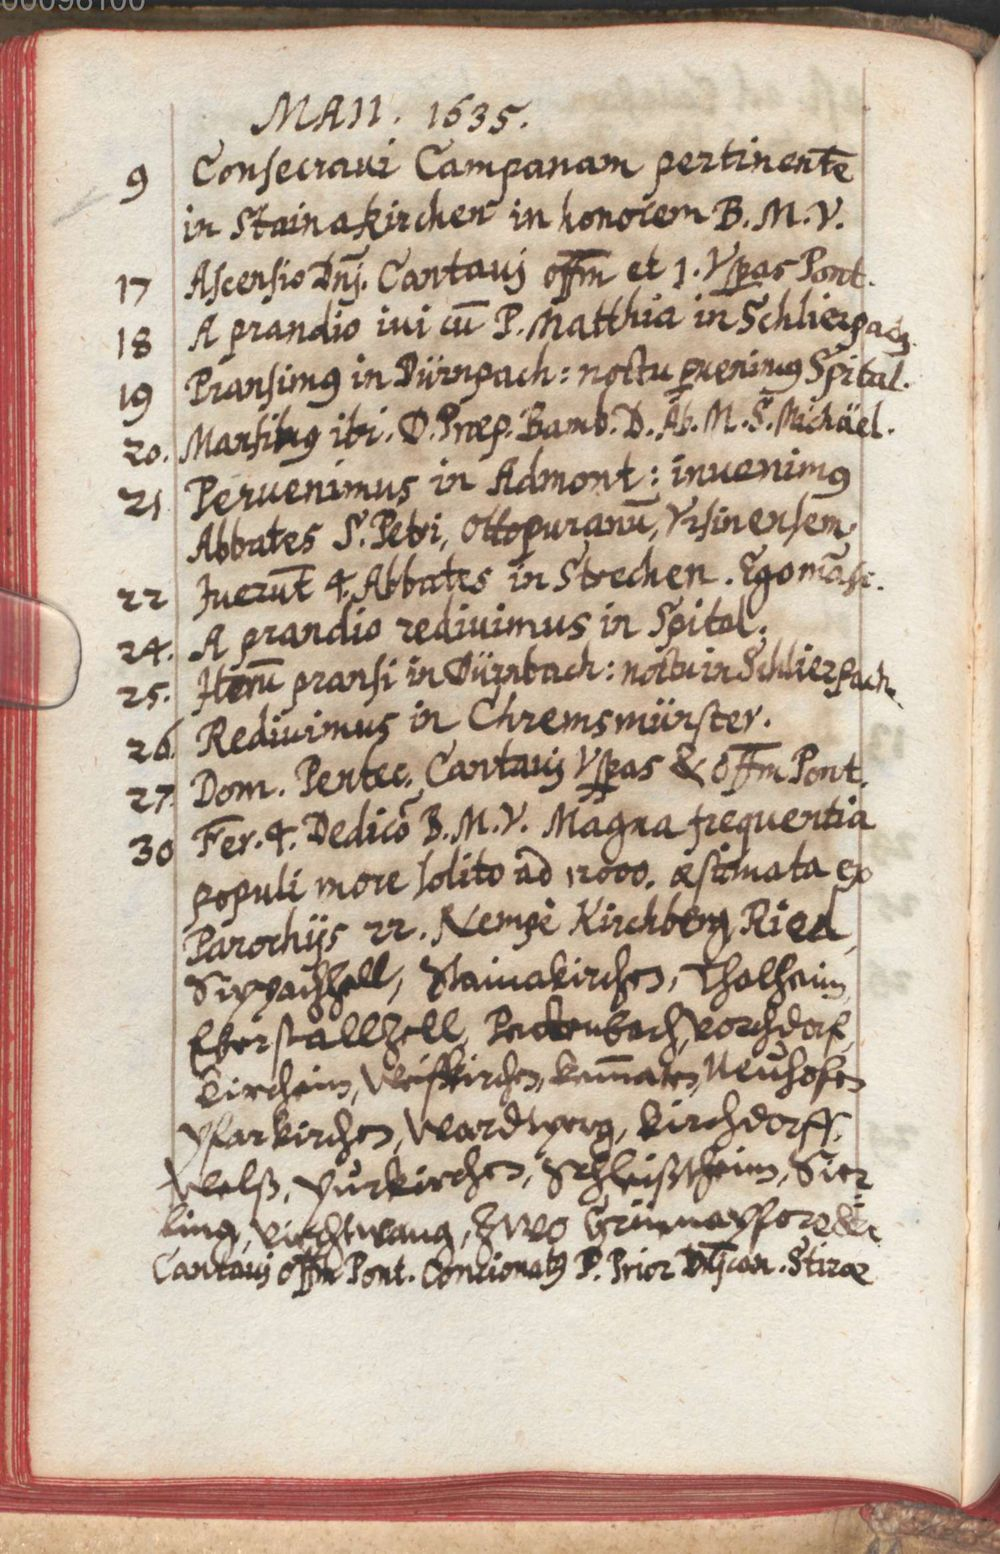 00096100
MAII. 1635.
9 Consecraui Campanam pertinentē
in Stainakirchen in honorem B. M. V.
17 Ascensio Dñj. Cantauj offm et 1. Vpas Pont.
18 A prandio iui cū P. Matthia in Schlierpach.
19 Pransimꝯ in Dürnpach: noctu puenimꝯ Spital.
20. Mansimꝯ ibi. D. Præp. Bamb. D. Ab. M. S. Michäel.
21 Peruenimus in Admont: invenimꝯ
Abbates S. Petri, Ottopuranū, Vrsinensem,
22 Iuerūt 4. Abbates in Strechen. Ego māsi.
24. A prandio rediuimus in Spital.
25. Iterū pransi in Dürnbach: noctu in Schlierpach.
26. Rediuimus in Chremsmünster.
27. Dom. Pentec. Cantauj Vpas & offm Pont.
30 Fer. 4. Dedicō B. M. V. Magna frequentia
populi more solito ad 12000. æstimata ex
Parochijs 22. Nempe Kirchberg, Ried,
Sippachzell, Stainakirchen, Thalheim,
Eberstallzell, Pettenbach, Vorchdorf,
Kircheim, Weiskirchen, Kem̄aten, Neuhofen
Pfarkirchen, Wardtperg, Kirchdorff,
Welß, Purkirchen, Schleißheim, Sier
ling, Viechtwang, Zwo Grünaupfored
Cantauj offm Pont. Concionatꝯ P. Prior Stiræ